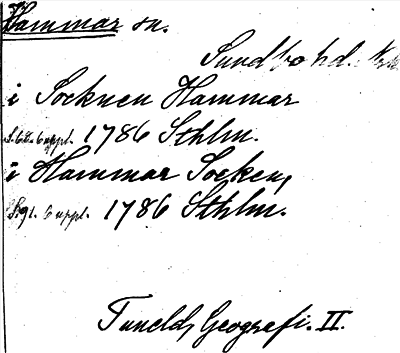 Hammar sn.
Sundbo hd.
i Socknen Hammar
S. 62. 6 uppl. 1786 Sthlm.
i Hammar Socken,
S. 91. 6 uppl. 1786 Sthlm.
Tunelds Geografi. II.